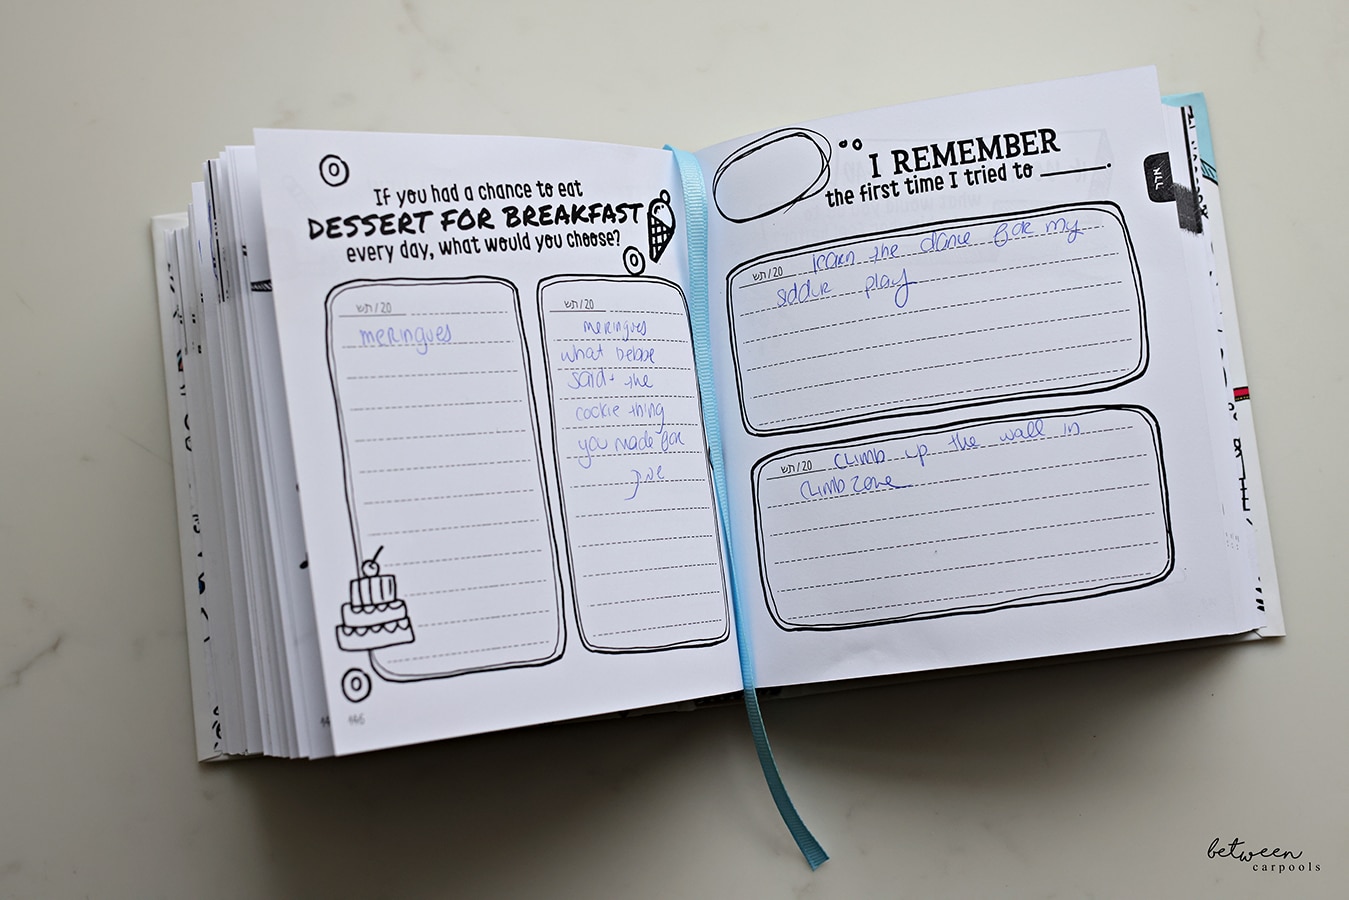 If you had a chance to eat
DESSERT FOR BREAKFAST
every day, what would you choose?
תש /20
meringues
תש /20
meringues
what
said the
cookie thing
you made for
146
I REMEMBER
the first time I tried to ______.
תש /20 learn the dance for my
siddur play
תש /20 climb up the wall in
climb zone
between
carpools